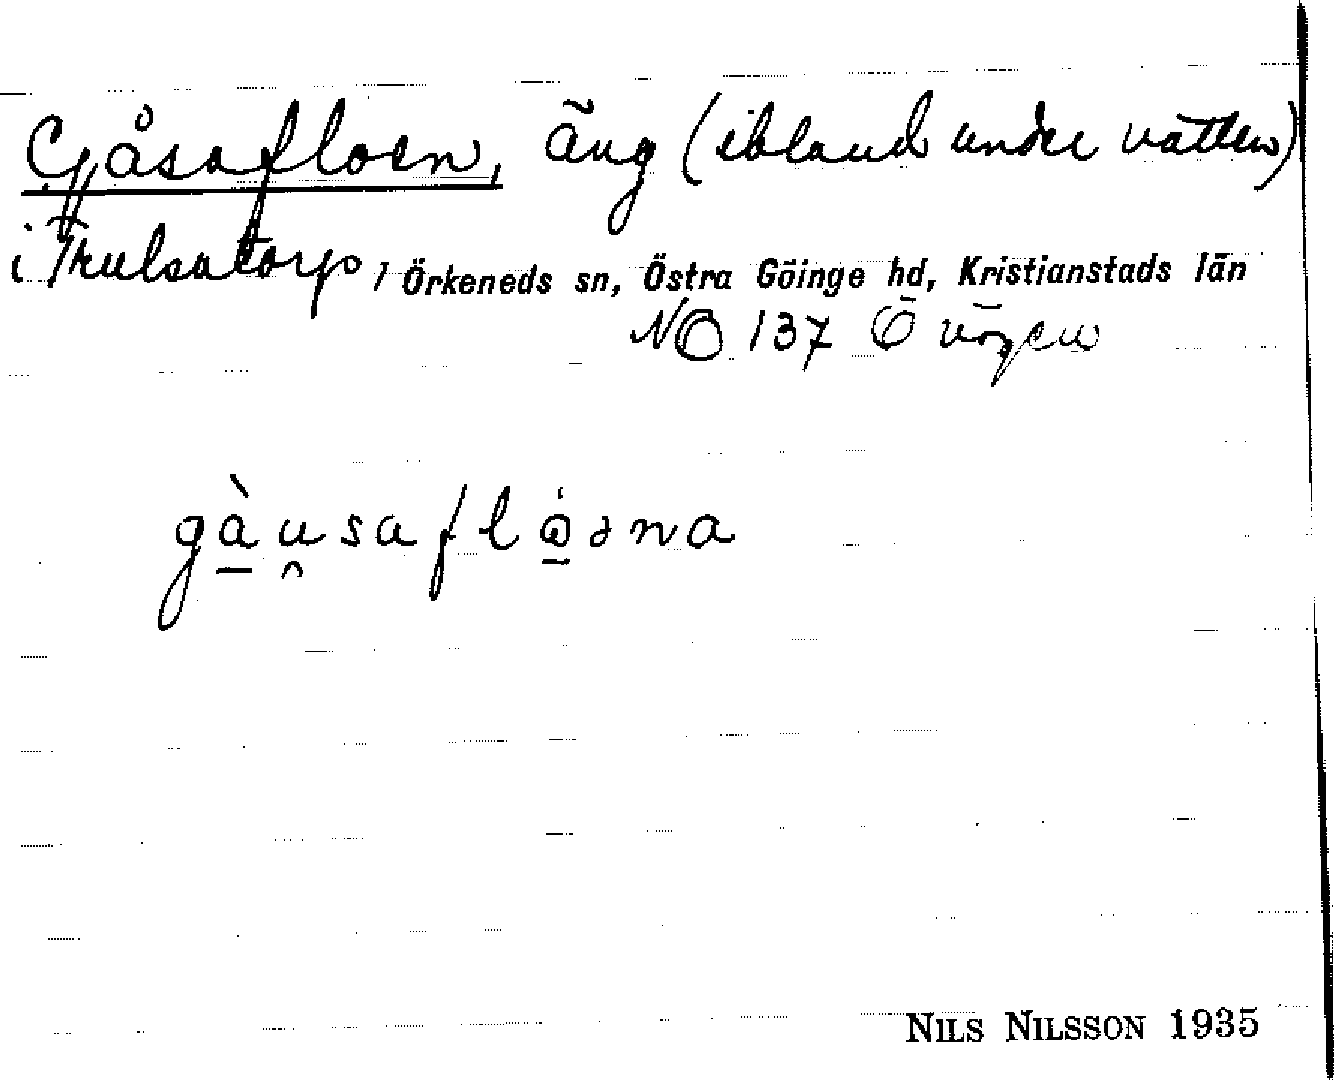 Gåsafloen, äng (ibland under vatten)
i Trulsatorp / Örkeneds sn, Östra Göinge hd, Kristianstads län
NO 137 Ö vägen
gàu̯saflóəna
NILS NILSSON 1935